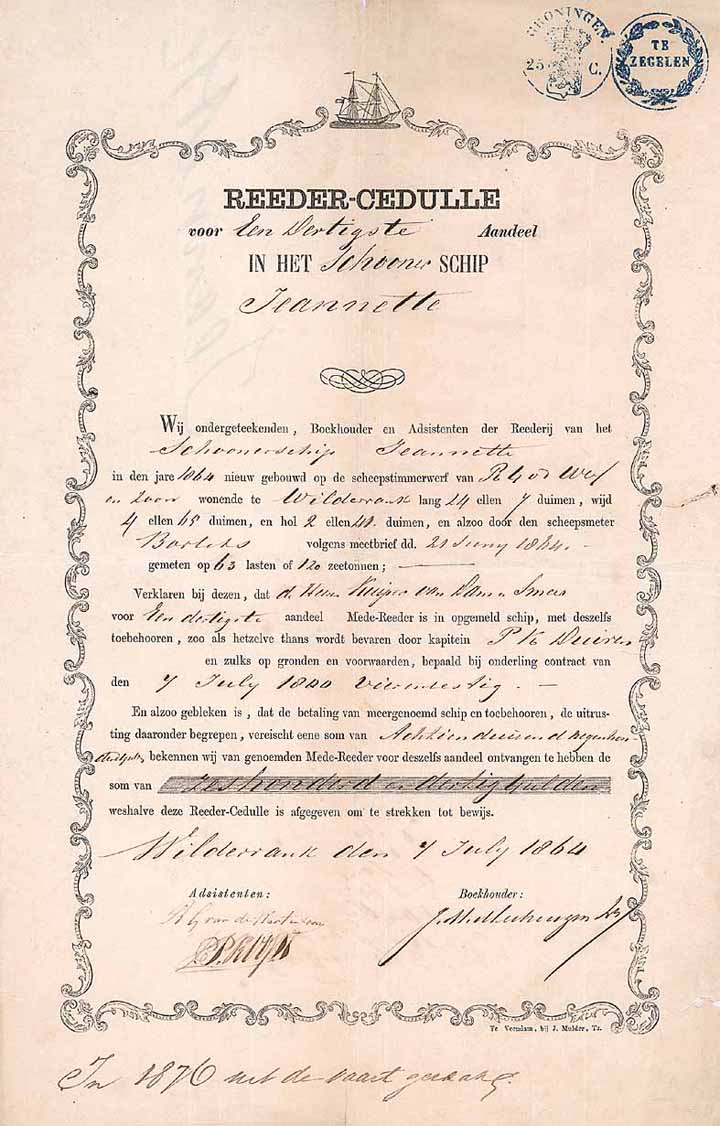 GRONINGEN
25 C.
TE
ZEGELEN
REEDER-CEDULLE
voor Een Dertigste Aandeel
IN HET Schooner SCHIP
Jeannette
Wij ondergeteekenden, Boekhouder en Adsistenten der Reederij van het
Schoonerschip Jeannette
in den jare 1864 nieuw gebouwd op de scheepstimmerwerf van
en Zoon wonende te Wildervank lang 24 ellen 7 duimen, wijd
4 ellen 65 duimen, en hol 2 ellen 41 duimen, en alzoo door den scheepsmeter
volgens meetbrief dd. 21 Juny 1864.
gemeten op 63 lasten of 120 zeetonnen;
Verklaren bij dezen, dat d Heeren Kuiper van Dam &
voor Een dertigste aandeel Mede-Reeder is in opgemeld schip, met deszelfs
toebehooren, zoo als hetzelve thans wordt bevaren door kapitein P K
en zulks op gronden en voorwaarden, bepaald bij onderling contract van
den 7 July
En alzoo gebleken is, dat de betaling van meergenoemd schip en toebehooren, de uitrus-
ting daaronder begrepen, vereischt eene som van Achttienduizend negenhon-
dert guld. bekennen wij van genoemden Mede-Reeder voor deszelfs aandeel ontvangen te hebben de
som van zeshonderd en dertig Gulden
weshalve deze Reeder-Cedulle is afgegeven om te strekken tot bewijs.
Wildervank den 7 July 1864
Adsistenten: Boekhouder:
Te Veendam, bij J. Mulder, Tz.
In 1876 uit de vaart geraakt.